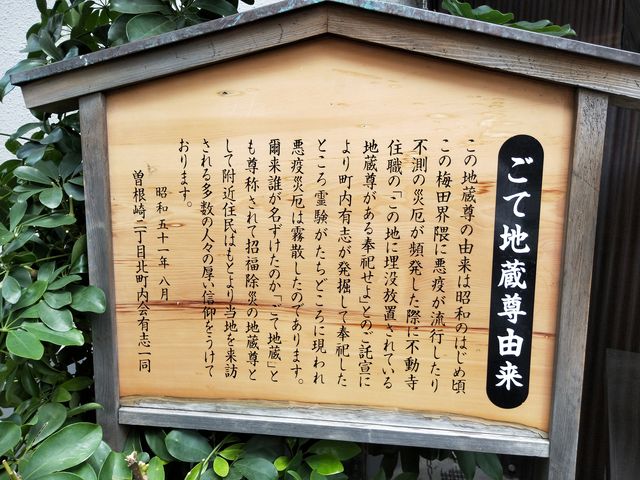 ごて地蔵尊由来
この地蔵尊の由来は昭和のはじめ頃
この梅田界隈に悪疫が流行したり
不測の災厄が頻発した際に不動寺
住職の「この地に埋没放置されている
地蔵尊がある奉祀せよ」とのご託宣に
より町内有志が発掘して奉祀した
ところ霊験がたちどころに現われ
悪疫災厄は霧散したのであります。
爾来誰が名ずけたのか「ごて地蔵」と
も尊称されて招福除災の地蔵尊と
して附近住民はもとより当地を来訪
される多数の人々の厚い信仰をうけて
おります。
昭和五十一年八月
曽根崎二丁目北町内会有志一同